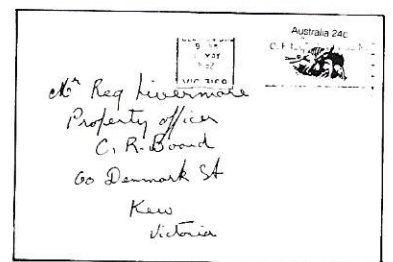 Australia 24c
Mr Reg Livermore
Property officer
C. R. Board
60 Denmark St
Kew
Victoria